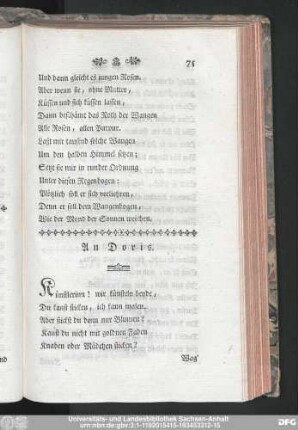 75
Und dann gleicht es jungen Rosen.
Aber wenn sie, ohne Mutter,
Küssen und sich küssen lassen,
Dann beschämt das Roth der Wangen
Alle Rosen, allen Purpur.
Laßt mir tausend solche Wangen
Um den halben Himmel sitzen;
Setzt sie nur in runder Ordnung
Unter diesen Regenbogen:
Plötzlich soll er sich verliehren,
Denn er soll dem Wangenbogen,
Wie der Mond der Sonnen weichen.
An Doris.
Künstlerinn! wir künsteln beyde,
Du kanst sticken, ich kann malen.
Aber stickst du dann nur Blumen?
Kanst du nicht mit goldnen Faden
Knaben oder Mädchen sticken?
Was
Universitäts- und Landesbibliothek Sachsen-Anhalt
urn:nbn:de:gbv:3:1-1192015415-183453212-15